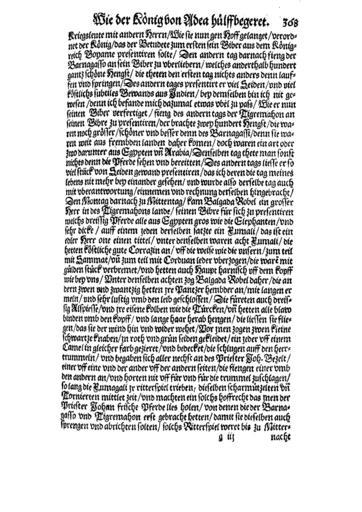 Wie der König von Adea hülff begeret. 368
Kriegsleute mit andern Herrn/ Wie sie nun gen Hoff gelanget/ verord-
net der König/ das der Betudete zum ersten sein Biber aus dem König-
reich presentiren solte/ Den andern tag darnach fieng der
Barnagasso an sein Biber zu / welches anderthalb hundert
gantz schöne Hengst/ die theten den ersten tag nichts anders denn lauf-
fen vnd springen/ Des andern tages presentiret er viel Seiden/ vnd viel
köstlichs subtiles Gewands aus Indien/ bey demselben bin ich mit ge-
wesen/ denn ich befande mich dazumal etwas vbel zu pass/ Wie er nun
seinen Biber verfertiget/ fieng des andern tages der Tigremahon an
seinen Bibre zu presentiren/ der brachte zwey hundert Hengste/ die wa-
ren noch grösser/ schöner vnd besser denn des Barnagassi/ denn sie wa-
ren weit aus frembden landen daher komen/ doch waren ein art oder
zwo darunter aus Egypten vñ Arabia/ Denselben tag thete man sonst
nichts denn die Pferde sehen vnd bereiten/ Des andern tags liess er so
viel stück von Seiden gewand presentiren/ das ich deren die tag meines
lebens nit mehr bey einander gesehen/ vnd wurde also derselbe tag auch
mit vberantwortung/ einnemen vnd rechnung derselben hingebracht/
Den Montag darnach zu Mittentag/ kam Balgada Robel ein grosser
Herr in des Tigremahons lande/ seinen Bibre für sich zu presentiren
meists dreissig Pferde alle aus Egypten gros wie die Elephanten/ vnd
sehr dicke/ auff einem jeden derselben satzte ein Xumali/ das ist ein
eder Herr one einen tittel/ vnter denselben waren acht Xumali/ die
hetten köstliche gute Corazin an/ vff die weis wie die vnsern/ zum teil
mit Sammat/ vñ zum teil mit Corduan leder vberzogen/ die waren mit
gülden stück verbremet/ vnd hetten auch Haupt harnisch vff dem kopff
wie bey vns/ Vnter denselben achten zog Balgada Robel daher/ die an-
dern zwen vnd zwantzig hetten jre Pantzer hembder an/ mit langen er-
meln/ vnd sehr lustig vmb den leib geschlossen/ Die füreten auch dreis-
sig Rispiesse/ vnd jre eiserne kolben wie die Türcken/ vñ hetten alle blaw
binden vmb den kopff/ vnd lange haar herab hengen/ die liessen sie flie-
gen/ das sie der wind hin vnd wider wehet/ Vor jnen zogen zween kleine
schwartze knaben/ in roth vnd grün seiden gekleidet/ ein jeder vff einem
Camel in gleicher farb gezieret/ vnd bedecket/ die schlugen auff den heer-
trummeln/ vnd begaben sich aller nechst an des Priester Joh. Gezelt/
einer vff eine vnd der ander vff der andern seiten/ die fiengen einer vmb
den andern an/ vnd horten nit vff für vnd für die trummel zuschlagen/
so lang die Xumagali jr ritterspiel trieben/ dieselben scharmützelten vñ
Tornierten mitlerzeit/ vnd machten ein solchs hoffrecht das men der
Priester Johan frische Pferde lies holen/ von denen die der Barna-
gasso vnd Tigremahon erst gebracht hetten/ damit sie dieselben auch
sprengen vnd abrichten solten/ solchs Ritterspiel weret bis zu Mitter-
q iij nacht